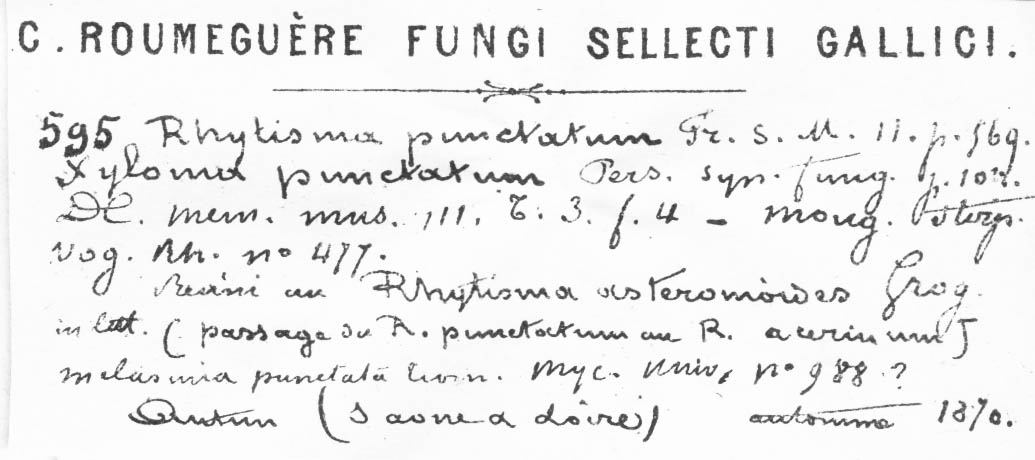 C. ROUMEGUÈRE FUNGI SELLECTI GALLICI.
595 Rhytisma punctatum Fr. S. M. 11. p. 569.
Xyloma punctatum Pers. syn. fung. p. 104.
DC. mem. mus. 111. t. 3. f. 4 - Moug. Stirps.
Vog. Rh. no 477.
Réuni au Rhytisma asteromoides Grog.
in litt. (passage du R. punctatum au R. acerinum)
Melasmia punctata myc. univ. no 988.?
Autun (Saone & Loire) automne 1870.